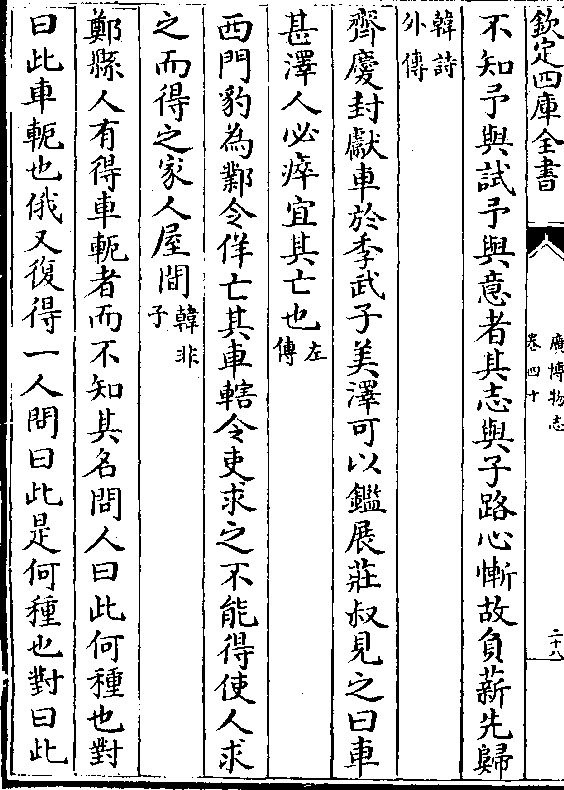 欽定四庫全書
廣博物志
卷四十
二十八
不知予與試予與意者其志與子路心慚故負薪先歸
韓詩
外傳
齊慶封獻車於季武子美澤可以鑑展莊叔見之曰車
甚澤人必瘁宜其亡也左
傳
西門豹為鄴令佯亡其車轄令吏求之不能得使人求
之而得之家人屋間韓非
子
鄭縣人有得車軛者而不知其名問人曰此何種也對
曰此車軛也俄又復得一人問曰此是何種也對曰此